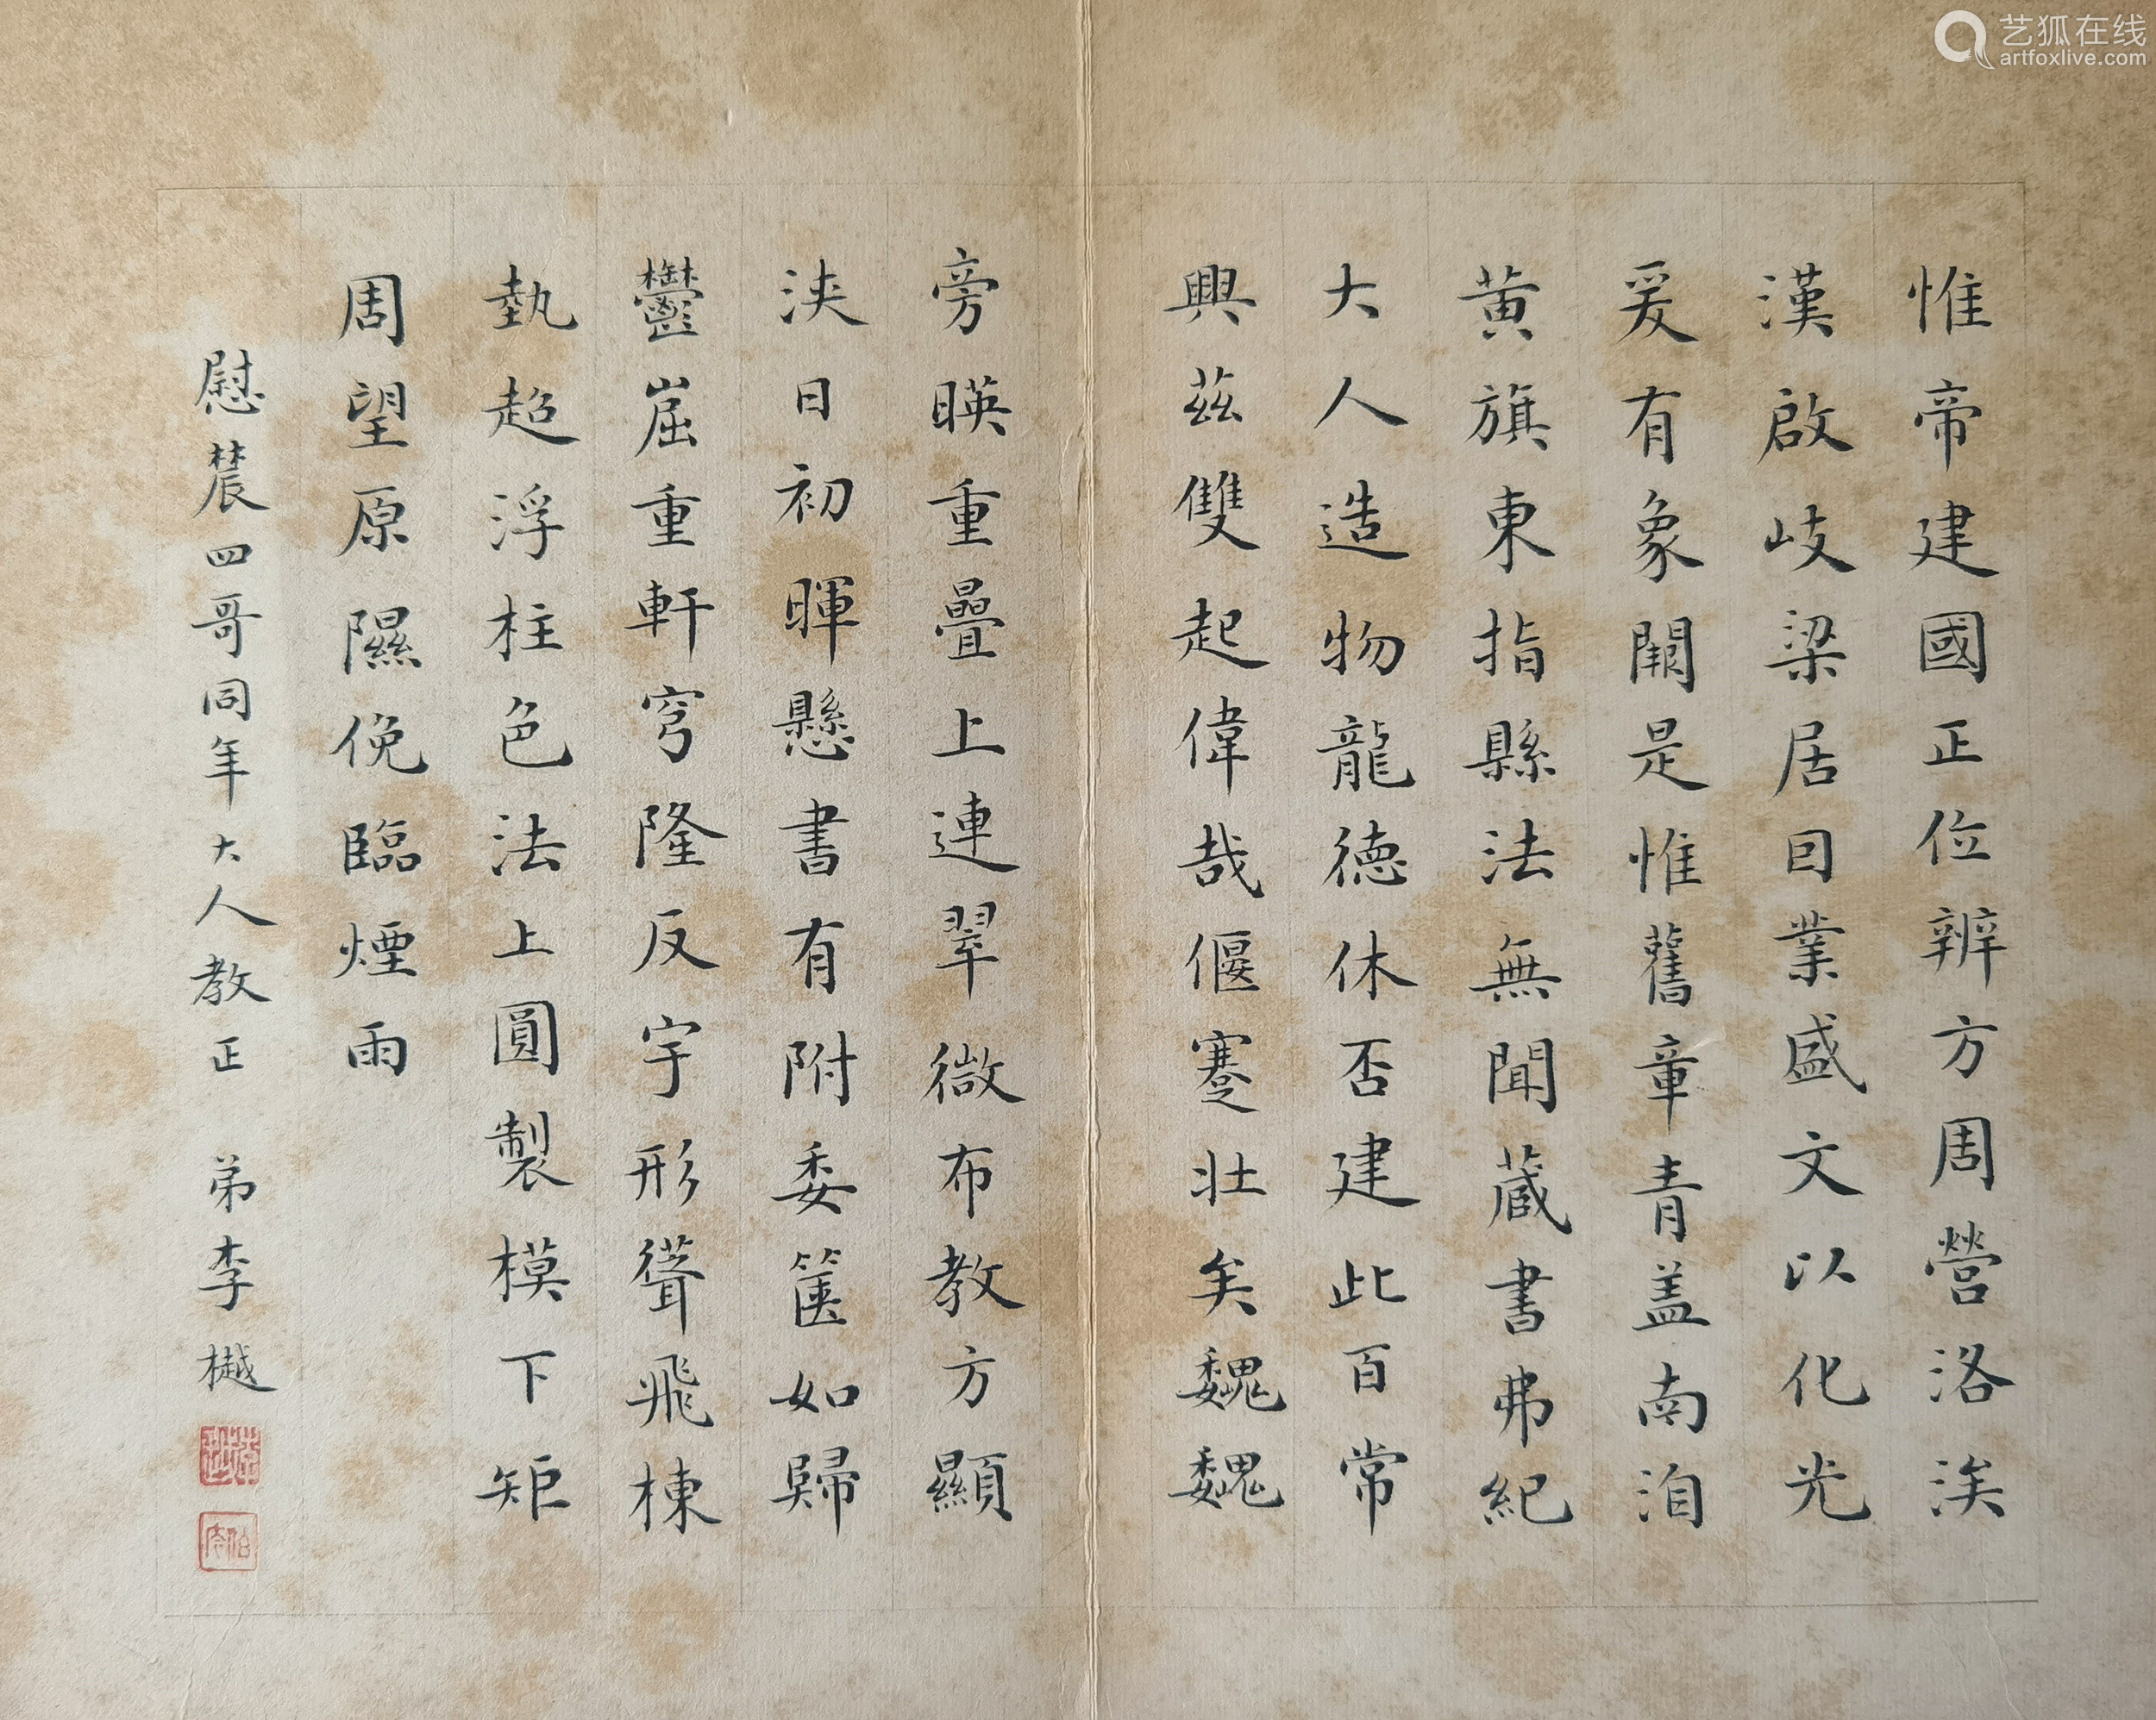 惟帝建國正位辨方周營洛涘
漢啟岐梁居因業盛文以化光
爰有象闕是惟舊章青蓋南洎
黃旗東指縣法無聞藏書弗紀
大人造物龍德休否建此百常
興茲雙起偉哉偃蹇壯矣巍巍
旁暎重疊上連翠微布教方顯
浹日初暉懸書有附委篋如歸
鬱崫重軒穹隆反宇形聳飛棟
埶超浮柱色法上圓製模下矩
周望原隰俛臨煙雨
慰農四哥同年大人教正 弟李樾
艺狐在线
artfoxlive.com